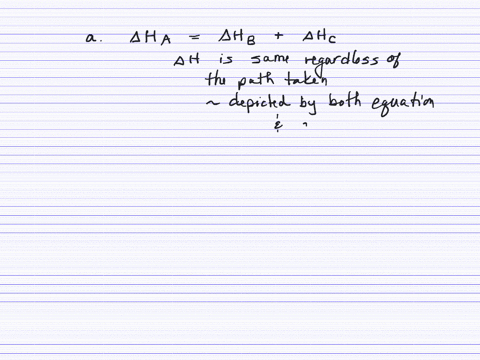 a. ΔH_A = ΔH_B + ΔH_C
ΔH is same regardless of
the path taken
~ depicted by both equation
&